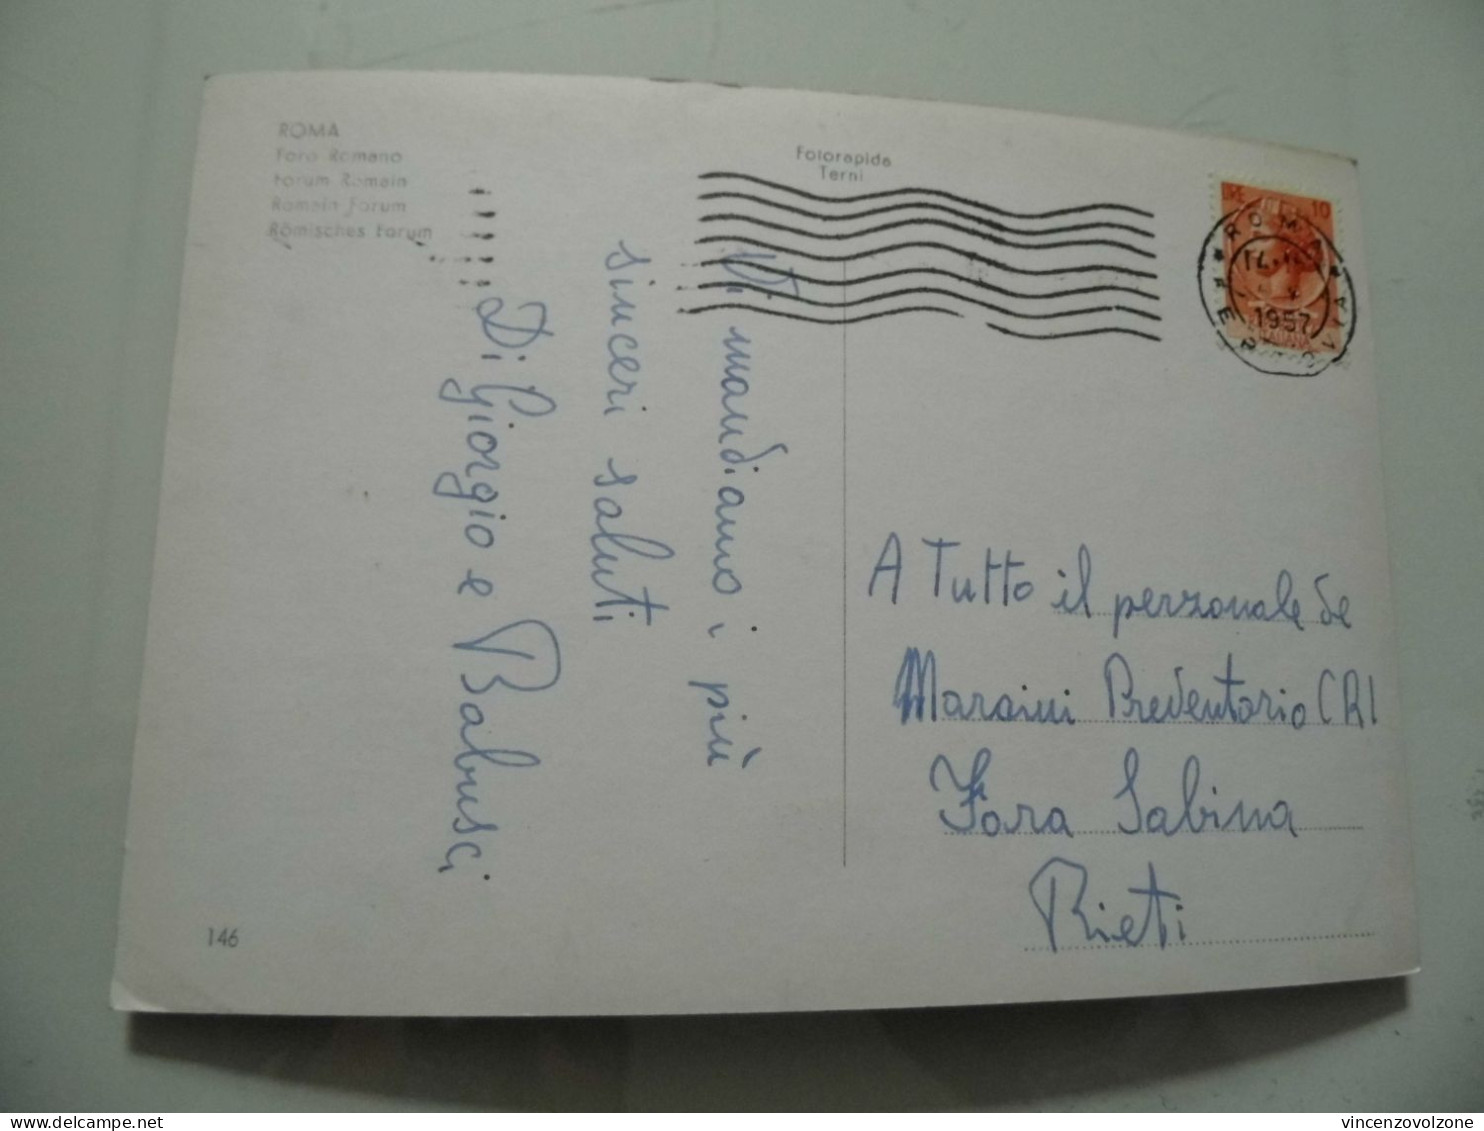 ROMA
Foro Romano
Forum Romain
Romain Forum
Römisches Forum
Fotorapida
Terni
LIRE 10
ROMA FERROVIA
1957
Vi mandiamo i più
sinceri saluti
Di Giorgio e Babusci
A Tutto il personale de
Maraini Preventorio CRI
Fara Sabina
Rieti
146
vincenzovolzone